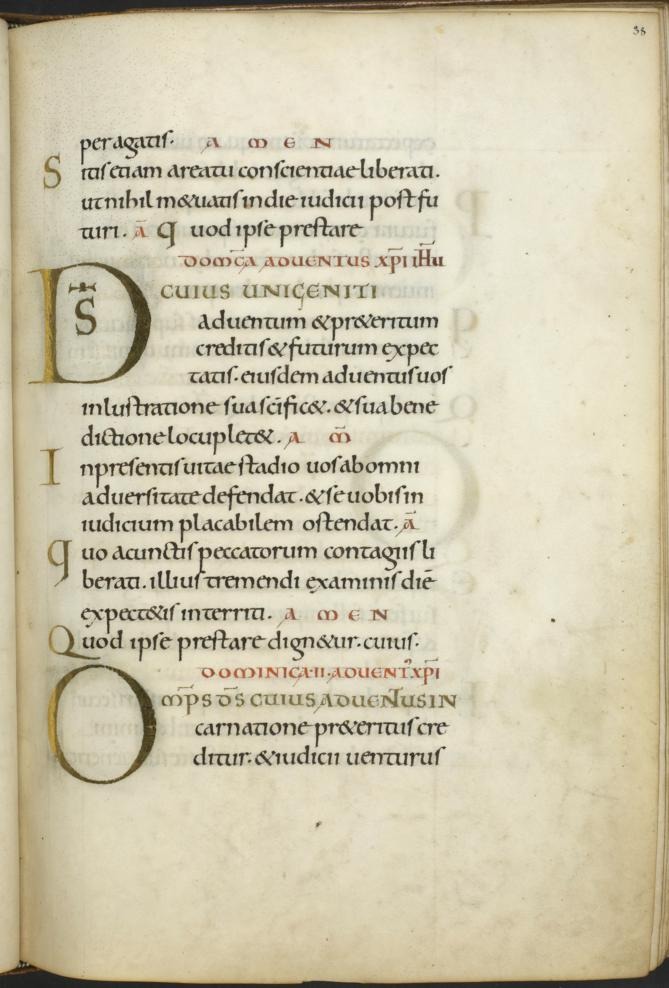 38
peragatis. AMEN
Sitis etiam a reatu conscientiae liberati.
ut nihil in&uatis in die iudicii post fu
turi. ā Quod ipse prestare
DOMC̄A ADUENTUS XP̄I IH̄U
DS̄ CUIUS UNIGENITI
aduentum & pr&eritum
creditis & futurum expec
tatis. eiusdem aduentus uos
inlustratione sua sc̄ific&. & sua bene
dictione locuplet&. A M̄
In presentis uitae stadio uos ab omni
aduersitate defendat. & se uobis in
iudicium placabilem ostendat. ā
Quo a cunctis peccatorum contagiis li
berati. illius tremendi examinis diē
expect&is interriti. AMEN
Quod ipse prestare dign&ur. cuius.
DOMINICA. II. ADUENT' XP̄I
OMP̄S DS̄ CUIUS ADUENTUS IN
carnatione pr&eritus cre
ditur. & iudicii uenturus